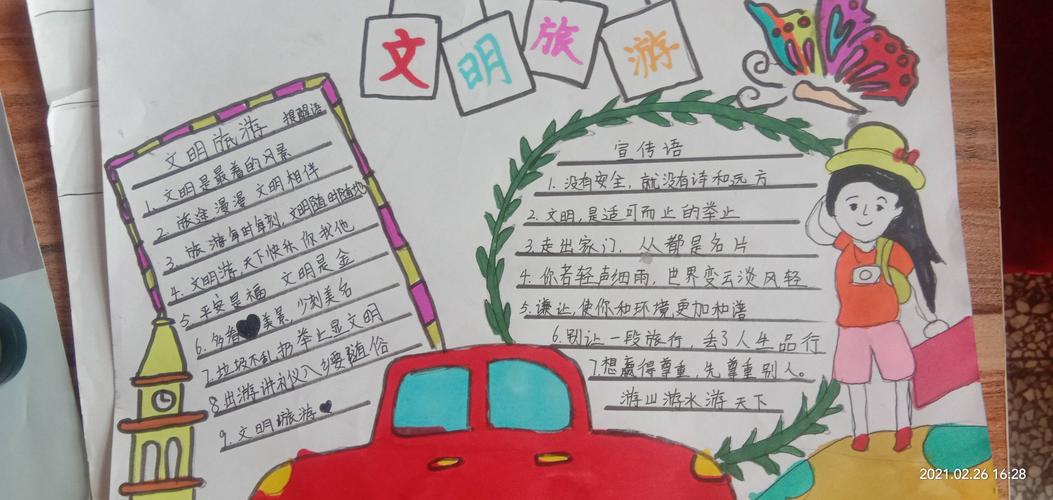 文明旅游
文明旅游 提醒语
1. 文明是最美的风景
2. 旅途漫漫 文明相伴
3. 旅游每时每刻，文明随时随地
4. 文明游，天下快乐你我他
5. 平安是福 文明是金
6. 多看美景，少刻美名
7. 垃圾不乱扔举止显文明
8. 出游讲礼仪入乡要随俗
9. 文明旅游
宣传语
1. 没有安全，就没有诗和远方
2. 文明，是适可而止的举止
3. 走出家门，人人都是名片
4. 你若轻声细雨，世界变云淡风轻
5. 谦让，使你和环境更加和谐
6. 别让一段旅行，丢了人生品行
7. 想赢得尊重，先尊重别人。
游山游水游天下
2021.02.26 16:28